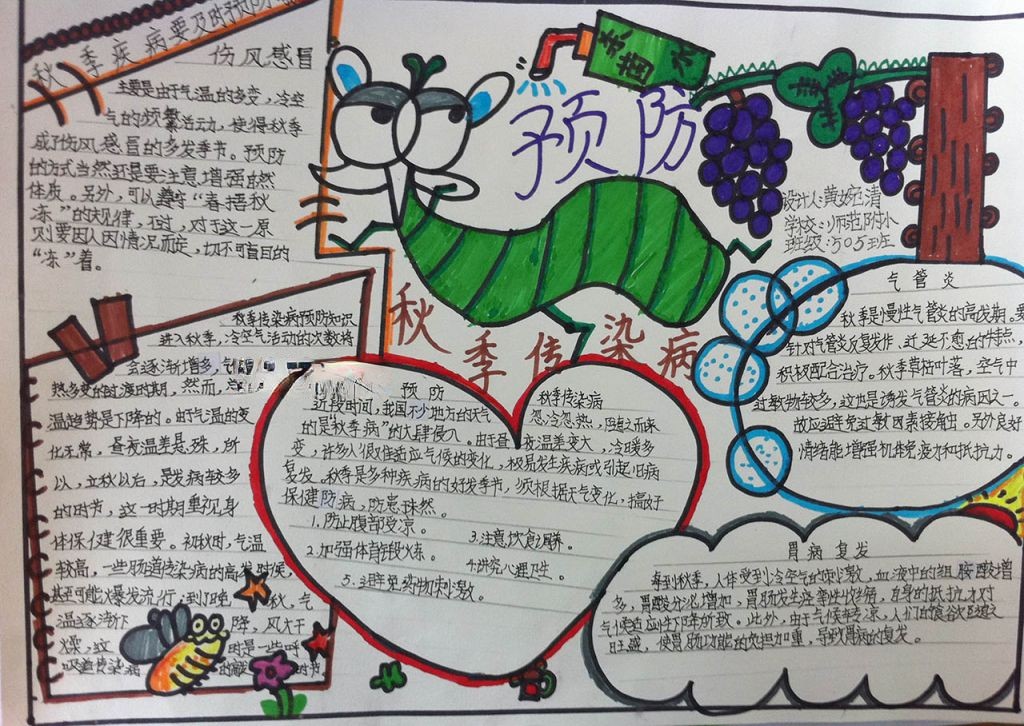 秋季疾病要及时预防
伤风感冒
主要是由于气温的多变，冷空
气的频繁活动，使得秋季
成了伤风感冒的多发季节。预防
的方式当然还是要注意增强自然
体质。另外，可以遵守“春捂秋
冻”的大规律，不过，对于这一原
则要因人因情况而定，切不可盲目的
“冻”着。
杀菌水
预防
设计人：黄婉清
学校：师范附小
班级：505班
秋季传染病
气管炎
秋季是慢性气管炎的高发期，要
针对气管炎反复发作，迁延不愈的特点，
积极配合治疗。秋季草枯叶落，空气中
过敏物较多，这也是诱发气管炎的病因之一。
故应避免过敏因素接触出。另外良好
情绪能增强机体免疫力和抵抗力。
秋季传染病预防知识
进入秋季，冷空气活动的次数将
会逐渐增多，
热多变的过渡时期，然而，
温趋势是下降的。由于气温的变
化无常，昼夜温差悬殊，所
以，立秋以后，是发病较多
的时节，这一时期重视身
体保健很重要。初秋时，气温
较高，一些肠道传染病的高发时候，
甚至可能爆发流行；到了晚秋，气
温逐渐下降，风大干
燥，这时是一些呼
吸道传染病的高时节
预防秋季传染病
近段时间，我国不少地方的天气忽冷忽热，随之而来
的是“秋季病”的大肆侵入。由于昼夜温差变大，冷暖多
变，许多人很难适应气候的变化，极易发生疾病或引起旧病
复发。秋季是多种疾病的好发季节，须根据天气变化，搞好
保健防病，防患未然。
1.防止腹部受凉。 3.注意饮食调养。
2.加强体育锻炼。 4.讲究心理卫生。
5.避免药物刺激。
胃病复发
每到秋季，人体受到冷空气的刺激，血液中的组胺酸增
多，胃酸分泌增加，胃肠发生痉挛性收缩，自身的抵抗力对
气候适应性下降所致。此外，由于气候转凉，人们的食欲随之
旺盛，使胃肠功能的负担加重，导致胃病的复发。